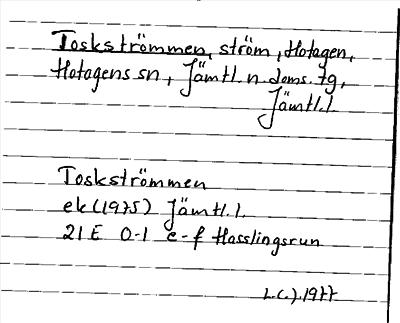 Toskströmmen, ström, Hotagen,
Hotagens sn, Jämtl. n. doms. tg,
Jämtl.l.
Toskströmmen
ek (1975) Jämtl. l.
21E 0-1 e-f Hasslingsrun
1977